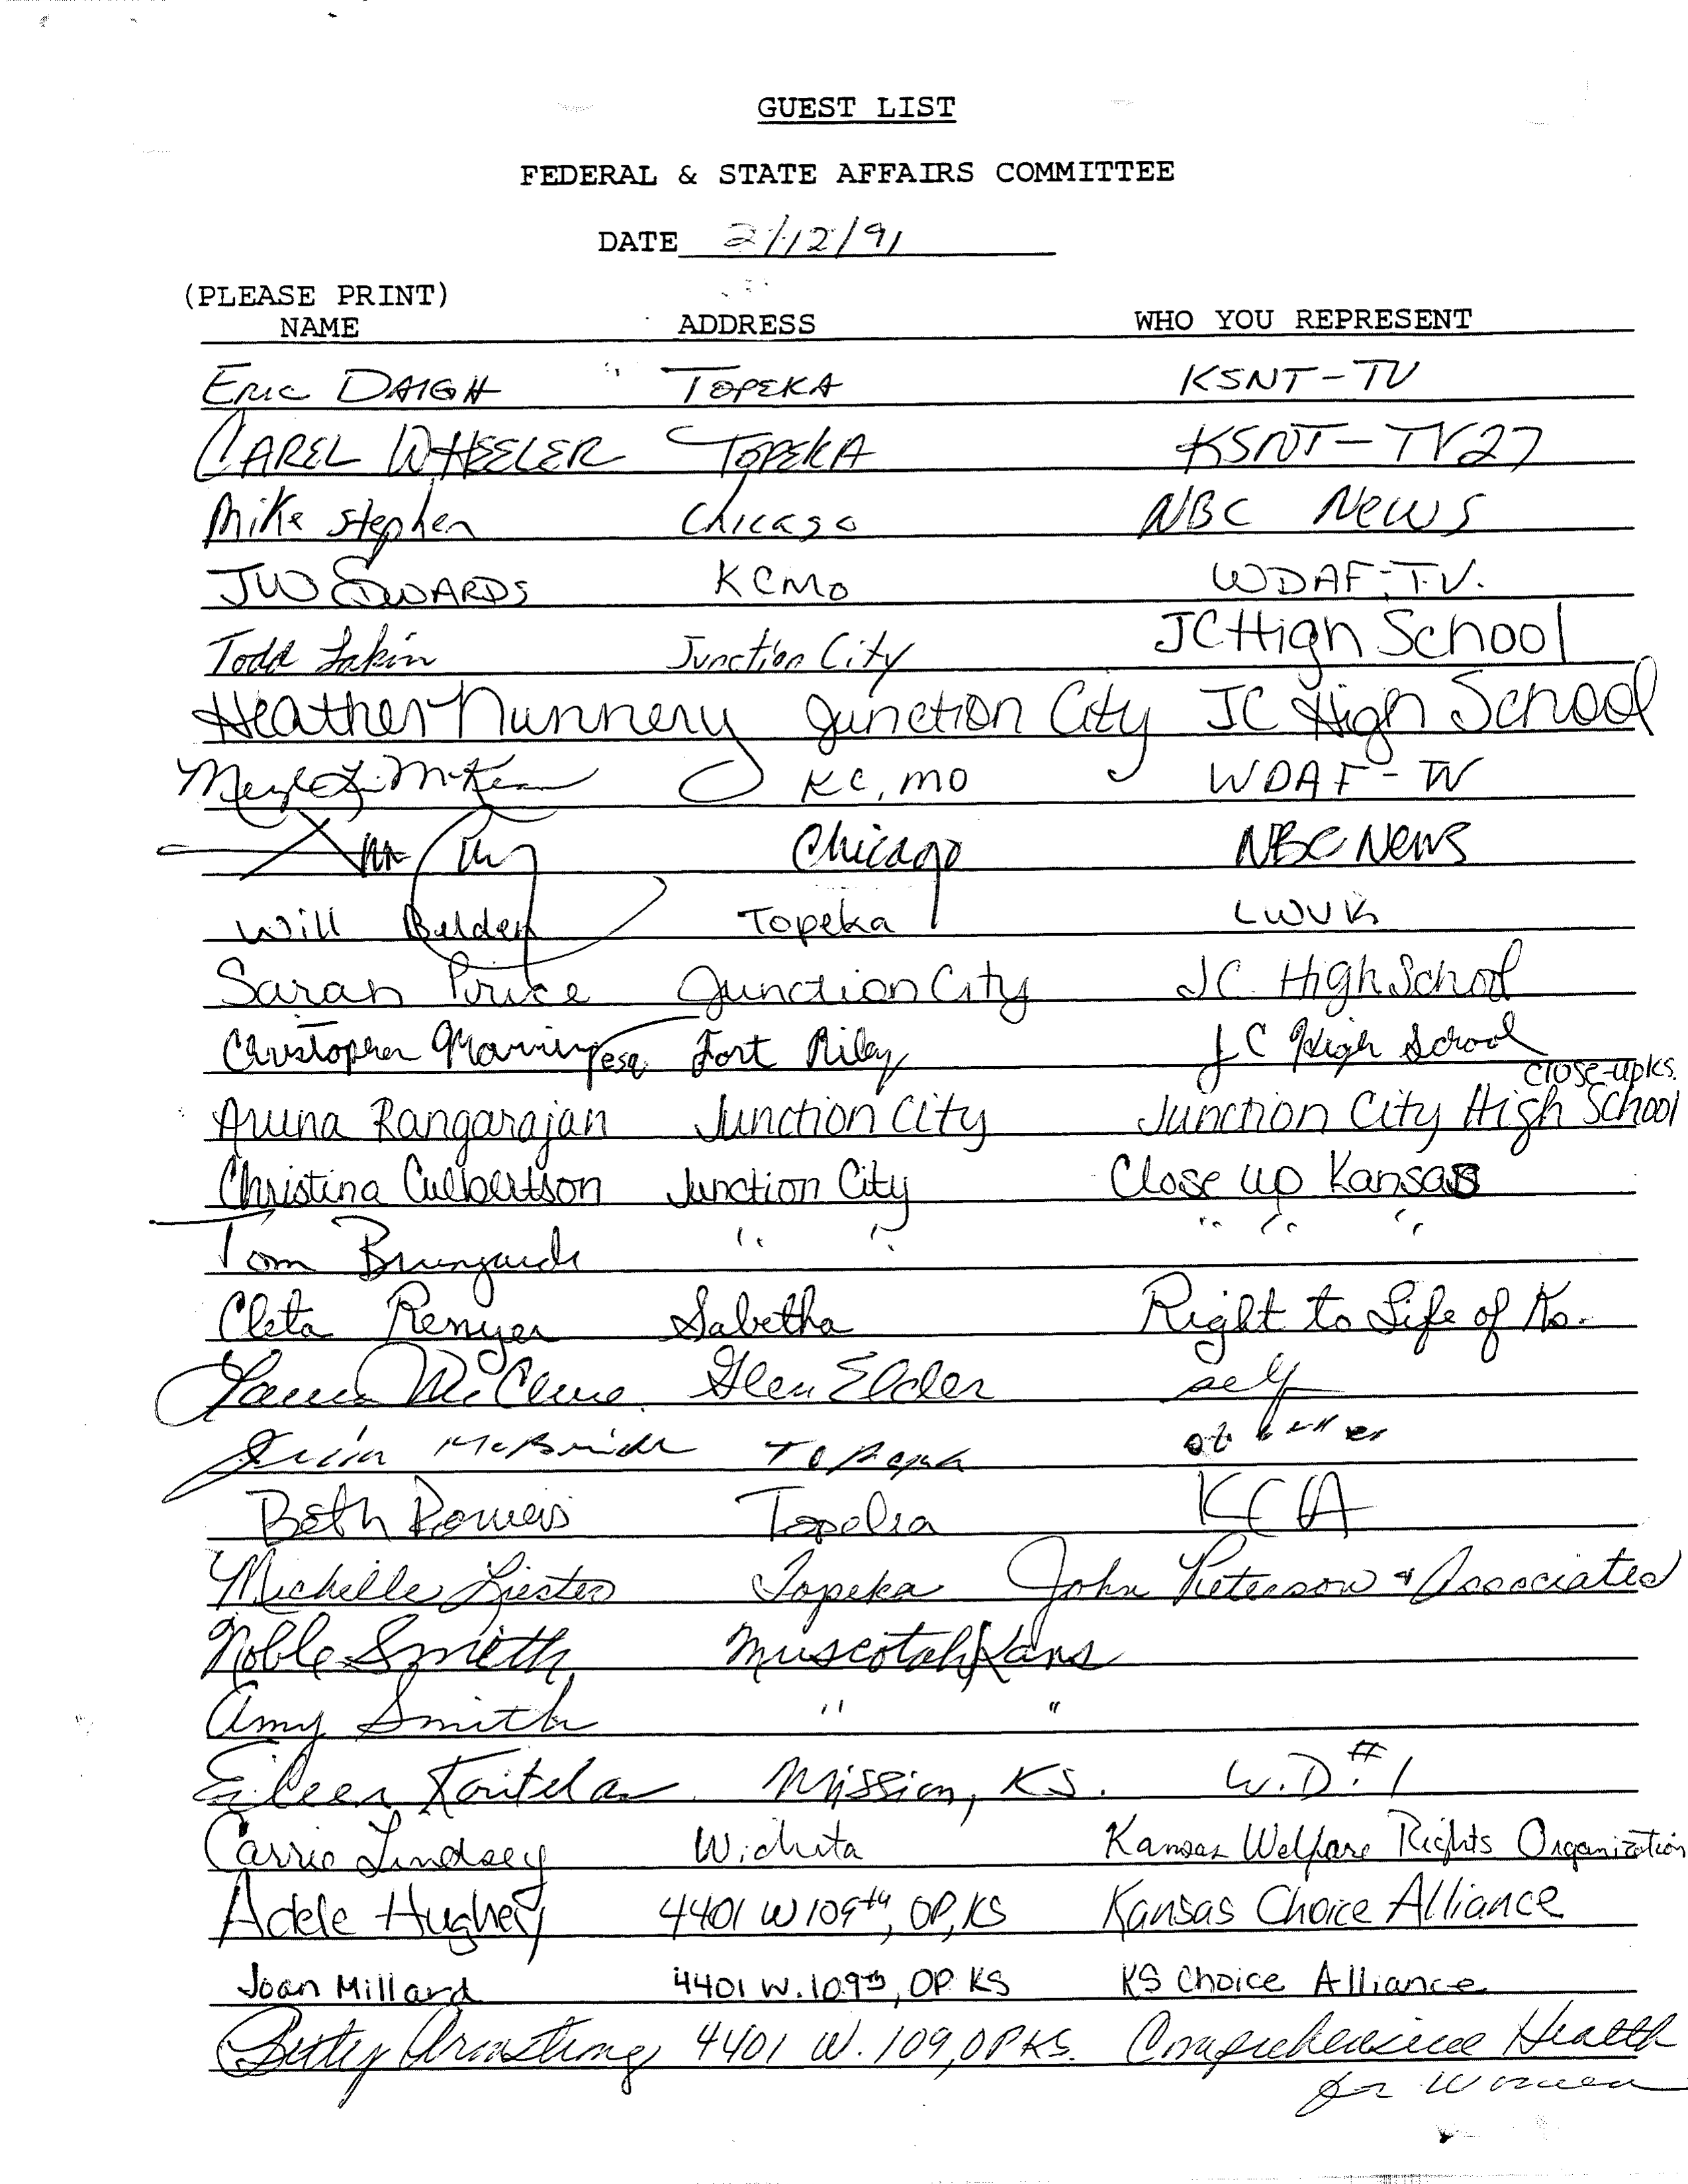 GUEST LIST
FEDERAL & STATE AFFAIRS COMMITTEE
DATE 2/12/91
(PLEASE PRINT)
NAME ADDRESS WHO YOU REPRESENT
ERIC DAIGH TOPEKA KSNT-TV
CAREL WHEELER TOPEKA KSNT-TV27
Mike Stephen Chicago NBC News
JW EDWARDS KCMO WDAF-TV.
Todd Lakin Junction City JC High School
Heather Nunnery Junction City JC High School
KC, MO WDAF-TV
Chicago NBC News
Will Belden Topeka LWVK
Sarah Price Junction City JC High School
Christopher esq. Fort Riley JC High School
Close-up Ks.
Aruna Rangarajan Junction City Junction City High School
Christina Culbertson Junction City Close up Kansas
Tom Brungardt " " " " "
Cleta Renyer Sabetha Right to Life of Ks.
McClure Glen Elder self
McBride Topeka
Beth Powers Topeka KCA
Michelle Liester Topeka John Peterson & Associates
Noble Smith Muscotah Kans
Amy Smith " "
Eileen Mission, KS. W.D. #1
Carrie Lindsey Wichita Kansas Welfare Rights Organization
Adele Hughey 4401 W 109th, OP, KS Kansas Choice Alliance
Joan Millard 4401 W. 109th, OP KS KS Choice Alliance
Betty Armstrong 4401 W. 109, OP KS. Comprehensive Health
for Women